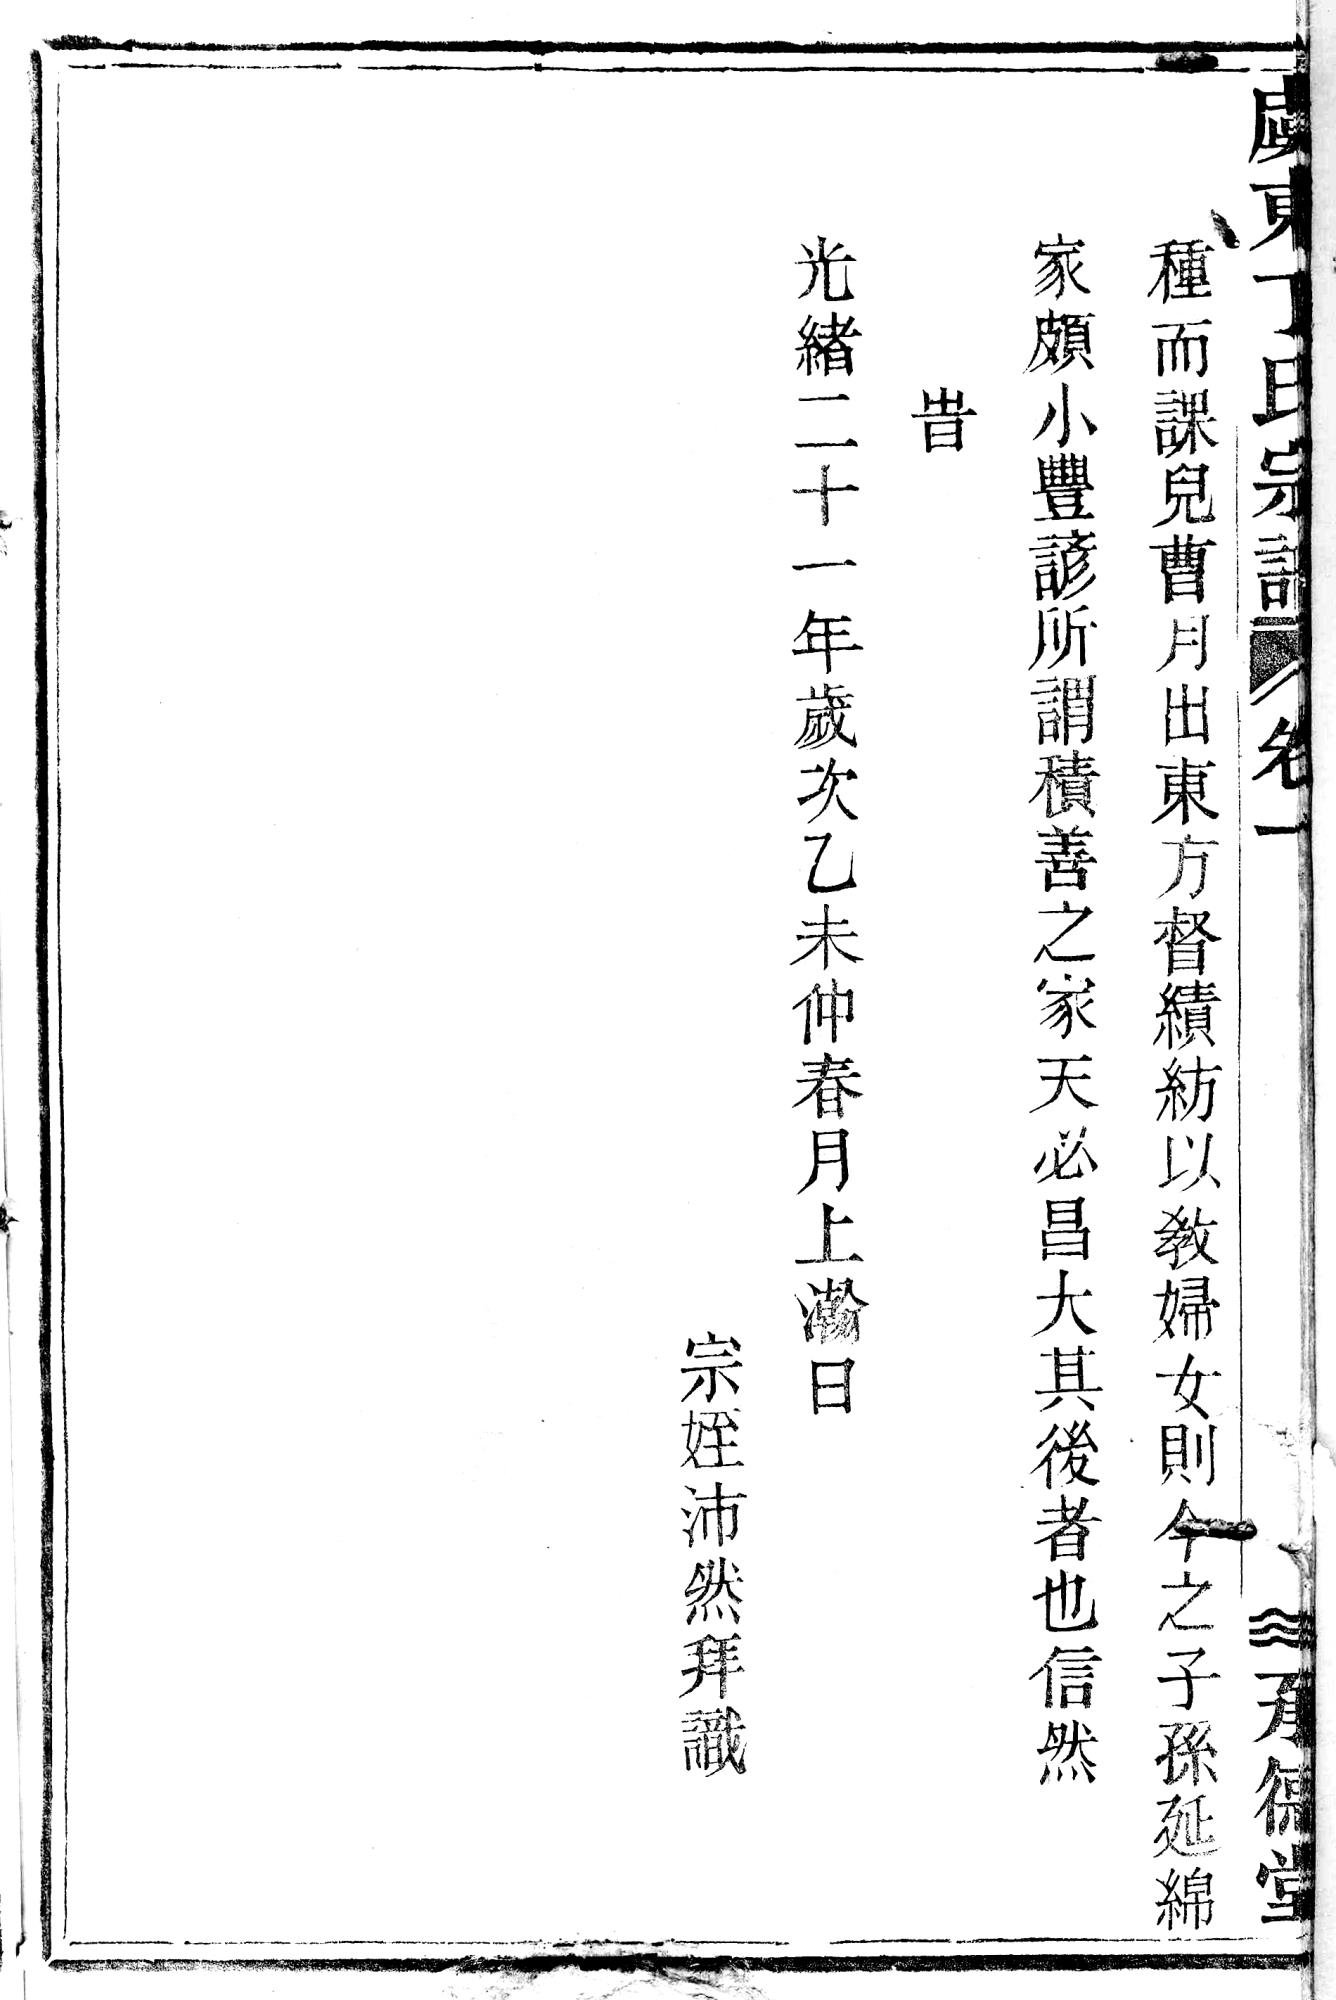 虞東丁氏宗譜 卷一 承德堂
種而課兒曹月出東方督績紡以敎婦女則今之子孫延綿
家頗小豐諺所謂積善之家天必昌大其後者也信然
旹
光緒二十一年歲次乙未仲春月上瀚日
宗姪沛然拜識